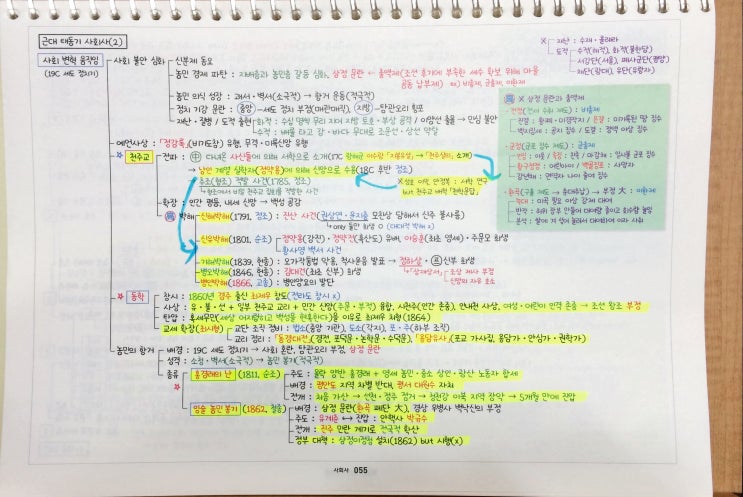 근대 태동기 사회사(2)
사회 변혁 움직임
(19C 세도 정치기)
사회 불안 심화
신분제 동요
농민 경제 파탄 : 지배층과 농민층 갈등 심화, 삼정 문란 ← 총액제(조선 후기에 부족한 세수 확보 위해 마을
공동 납부제) ex) 비총제, 군총제, 이환제
농민 의식 성장 : 괘서·벽서(소극적) → 항거 운동(적극적)
정치 기강 문란 : 중앙-세도 정치 부정(매관매직), 지방-탐관오리 횡포
재난·질병 / 도적 출현
화적 : 수십 명씩 무리 지어 지방 토호·부상 공격 / 이양선 출몰 → 민심 불안
수적 : 배를 타고 강·바다 무대로 조운선·상선 약탈
X
재난 : 수재·콜레라
도적
수적(해적), 화적(불한당)
서강단(서울), 폐사군단(평양)
채단(광대), 유단(유랑자)
X 삼정 문란과 총액제
전정(전세 수취 제도) : 비총제
진결 : 황폐·미경작지 / 은결 : 미기록된 땅 징수
백지징세 : 공지 징수 / 도결 : 정액 이상 징수
군정(군포 징수 제도) : 군총제
인징 : 이웃 / 족징 : 친족 / 마감채 : 일시불 군포 징수
황구첨정 : 어린아이 / 백골징포 : 사망자
강년채 : 면역자 나이 줄여 징수
환곡(구휼 제도 → 후대추납) → 부정 大 : 이환제
늑대 : 미곡 필요 이상 강제 대여
반작 : 허위 장부 만들어 대여량 줄이고 회수량 늘림
분석 : 쌀에 겨 섞어 늘려서 대여하여 이자 사취
예언사상 : 「정감록」(비기/예언) 유행, 무격·미륵신앙 유행
천주교
전파 : 中 다녀온 사신들에 의해 서학으로 소개(17C 광해군 이수광 「지봉유설」 → 「천주실의」 소개)
→ 남인 계열 실학자(정약용)에 의해 신앙으로 수용(18C 후반 정조)
추조(형조) 적발 사건(1785, 정조)
형조에서 비밀 천주교 집회를 적발한 사건
X 성호 이익, 안정복 : 서학 연구
but 천주교 배척 「천학문답」
확장 : 인간 평등, 내세 신앙 → 백성 공감
박해
신해박해(1791, 정조) : 진산 사건(권상연·윤지충 모친상 당해서 신주 불사름)
only 둘만 희생 O (대대적 박해 x)
신유박해(1801, 순조)
정약용(강진)·정약전(흑산도) 유배, 이승훈(최초 영세)·주문모 희생
황사영 백서 사건
기해박해(1839, 헌종) : 오가작통법 악용, 척사윤음 발표 → 정하상·프신부 희생
병오박해(1846, 헌종) : 김대건(최초 신부) 희생
「상재상서」 : 조상 제사 부정
신앙의 자유 호소
병인박해(1866, 고종) : 병인양요의 발단
동학
창시 : 1860년 경주 출신 최제우 창도(전라도 창시 x)
사상 : 유·불·선 + 일부 천주교 교리 + 민간 신앙(주문·부적) 융합, 시천주(인간 존중), 인내천 사상, 여성·어린이 인격 존중 → 조선 왕조 부정
탄압 : 혹세무민(세상 어지럽히고 백성을 현혹한다)을 이유로 최제우 처형(1864)
교세 확장(최시형)
교단 조직 정비 : 법소(중앙 기관), 도소(각지), 포·주(하부 조직)
교리 정리 : 「동경대전」(경전, 포덕문·논학문·수덕문), 「용담유사」(포교 가사집, 용담가·안심가·권학가)
농민의 항거
배경 : 19C 세도 정치기 → 사회 혼란, 탐관오리 부정, 삼정 문란
성격 : 소청·벽서(소극적) → 농민 봉기(적극적)
종류
홍경래의 난 (1811, 순조)
주도 : 몰락 양반 홍경래 + 영세 농민·중소 상인·광산 노동자 합세
배경 : 평안도 지역 차별 반대, 평서 대원수 자처
전개 : 처음 가산 → 선천·정주 점거 → 청천강 이북 지역 장악 → 5개월 만에 진압
임술 농민 봉기 (1862, 철종)
배경 : 삼정 문란(환곡 폐단 大), 경상 우병사 백낙신의 부정
주도 : 유계춘 ↔ 진압 : 안핵사 박규수
전개 : 진주 민란 계기로 전국적 확산
정부 대책 : 삼정이정청 설치(1862) but 시행(x)
사회사 055